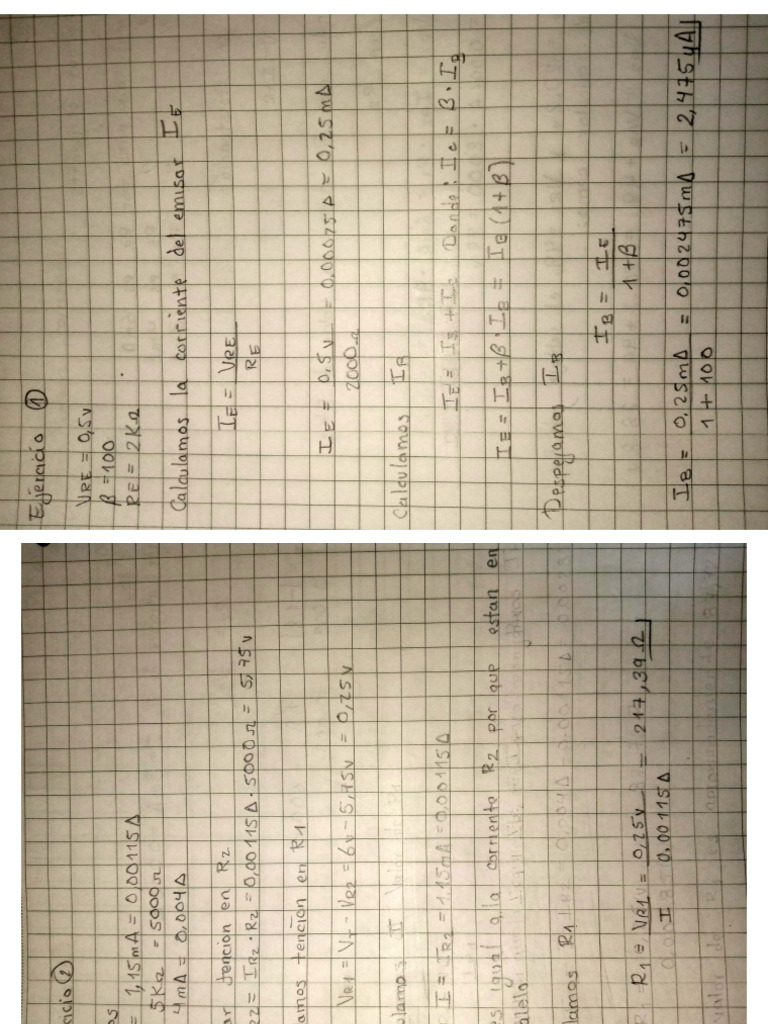 Ejercicio ①
VRE = 0,5v
β = 100
RE = 2KΩ
Calculamos la corriente del emisor IE
IE = VRE / RE
IE = 0,5v / 2000Ω = 0,00025A = 0,25mA
Calculamos IB
IE = IB + IC Dando: IC = β · IB
IE = IB + β · IB = IB (1 + β)
Despejamos IB
IB = IE / 1+β
IB = 0,25mA / 1 + 100 = 0,002475mA = 2,475μA
icio ②
os
= 1,15mA = 0,00115A
5KΩ = 5000Ω
4mA = 0,004A
ar tencion en R2
R2 = IR2 · R2 = 0,00115A · 5000Ω = 5,75v
amos tención en R1
VR1 = VT - VR2 = 6v - 5,75v = 0,25v
ulamos
I = IR2 = 1,15mA = 0,00115A
es igual a la corriente R2 por que estan en
alelo
lamos R1
R1 = VR1 / I = 0,25v / 0,00115A = 217,39Ω